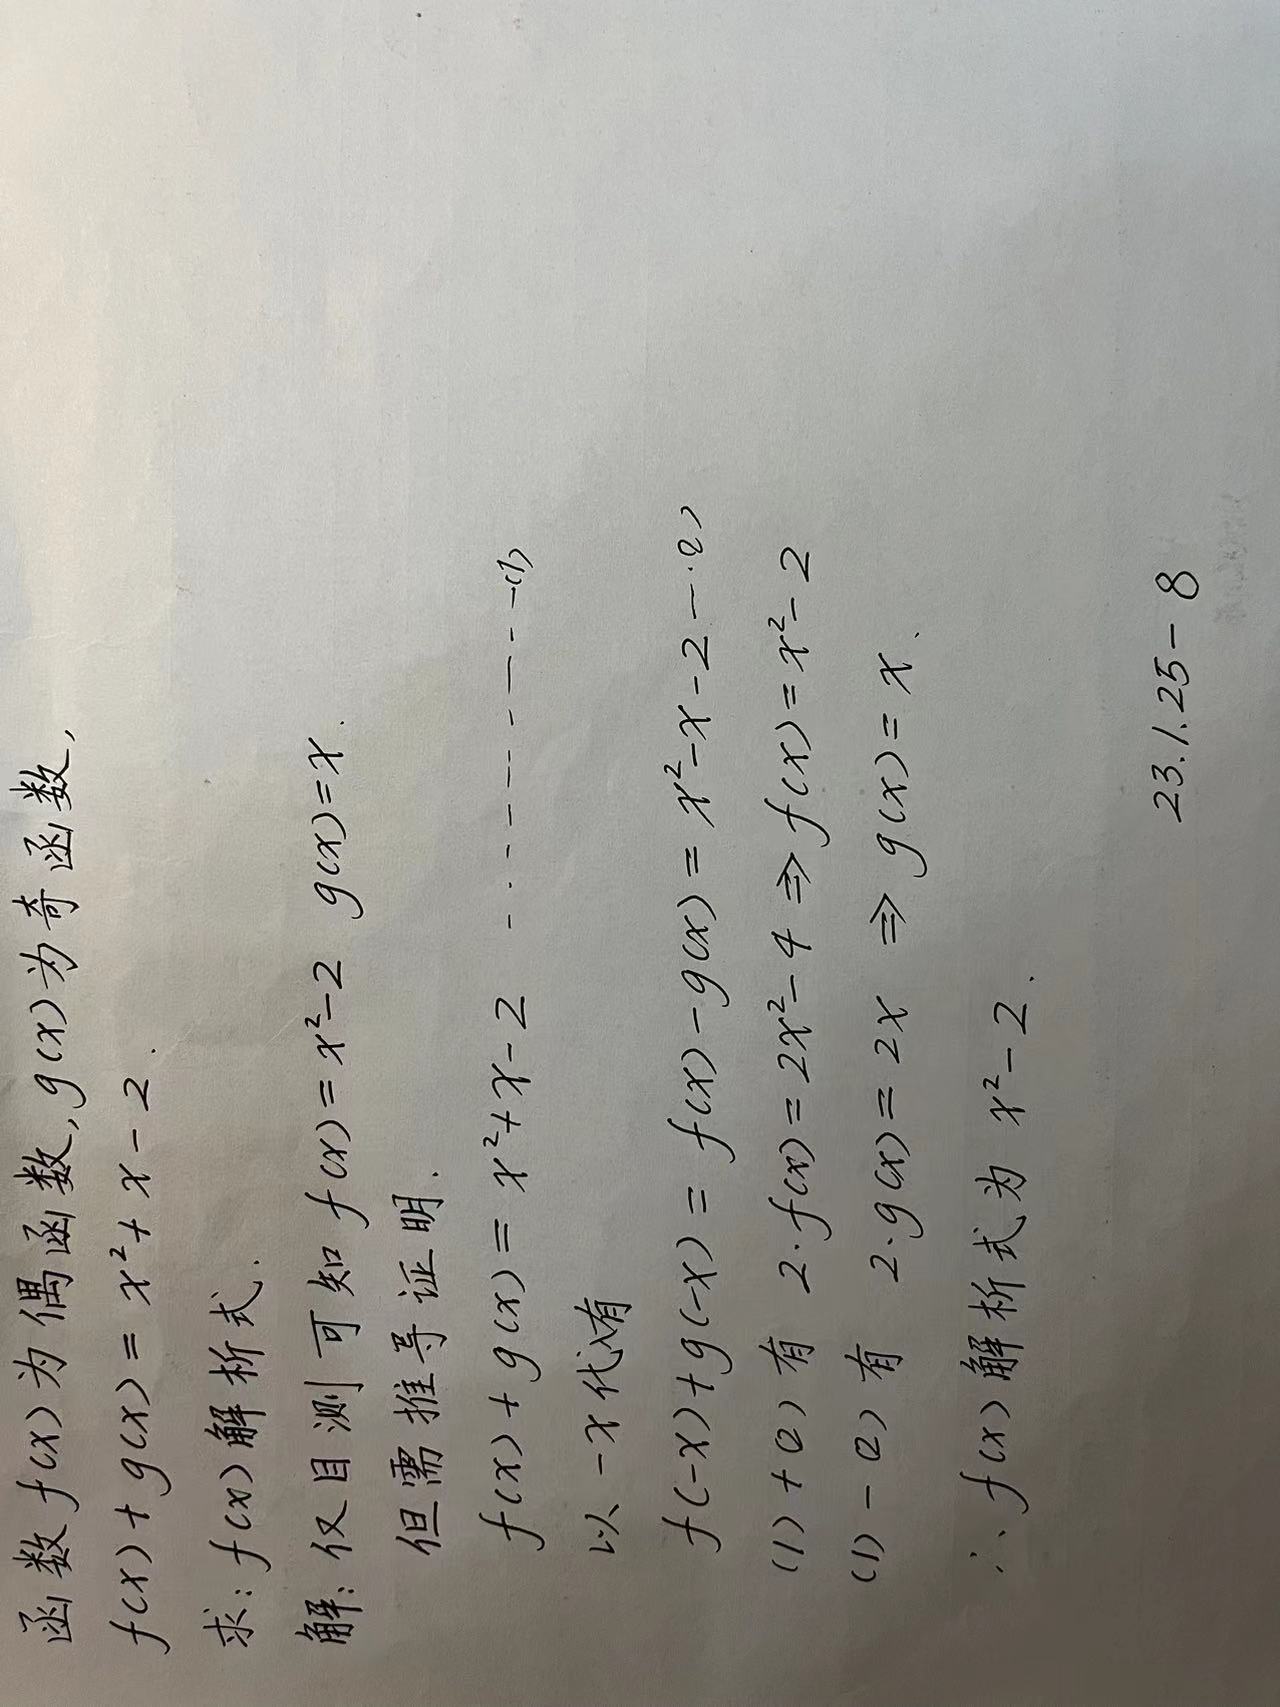 函数f(x)为偶函数,g(x)为奇函数,
f(x)+g(x)=x²+x-2.
求:f(x)解析式.
解:仅目测可知f(x)=x²-2 g(x)=x.
但需推导证明.
f(x)+g(x)=x²+x-2 ----------(1)
以-x代入有
f(-x)+g(-x)=f(x)-g(x)=x²-x-2--(2)
(1)+(2)有 2·f(x)=2x²-4⇒f(x)=x²-2
(1)-(2)有 2·g(x)=2x ⇒ g(x)=x.
∴f(x)解析式为 x²-2.
23.1.25-8